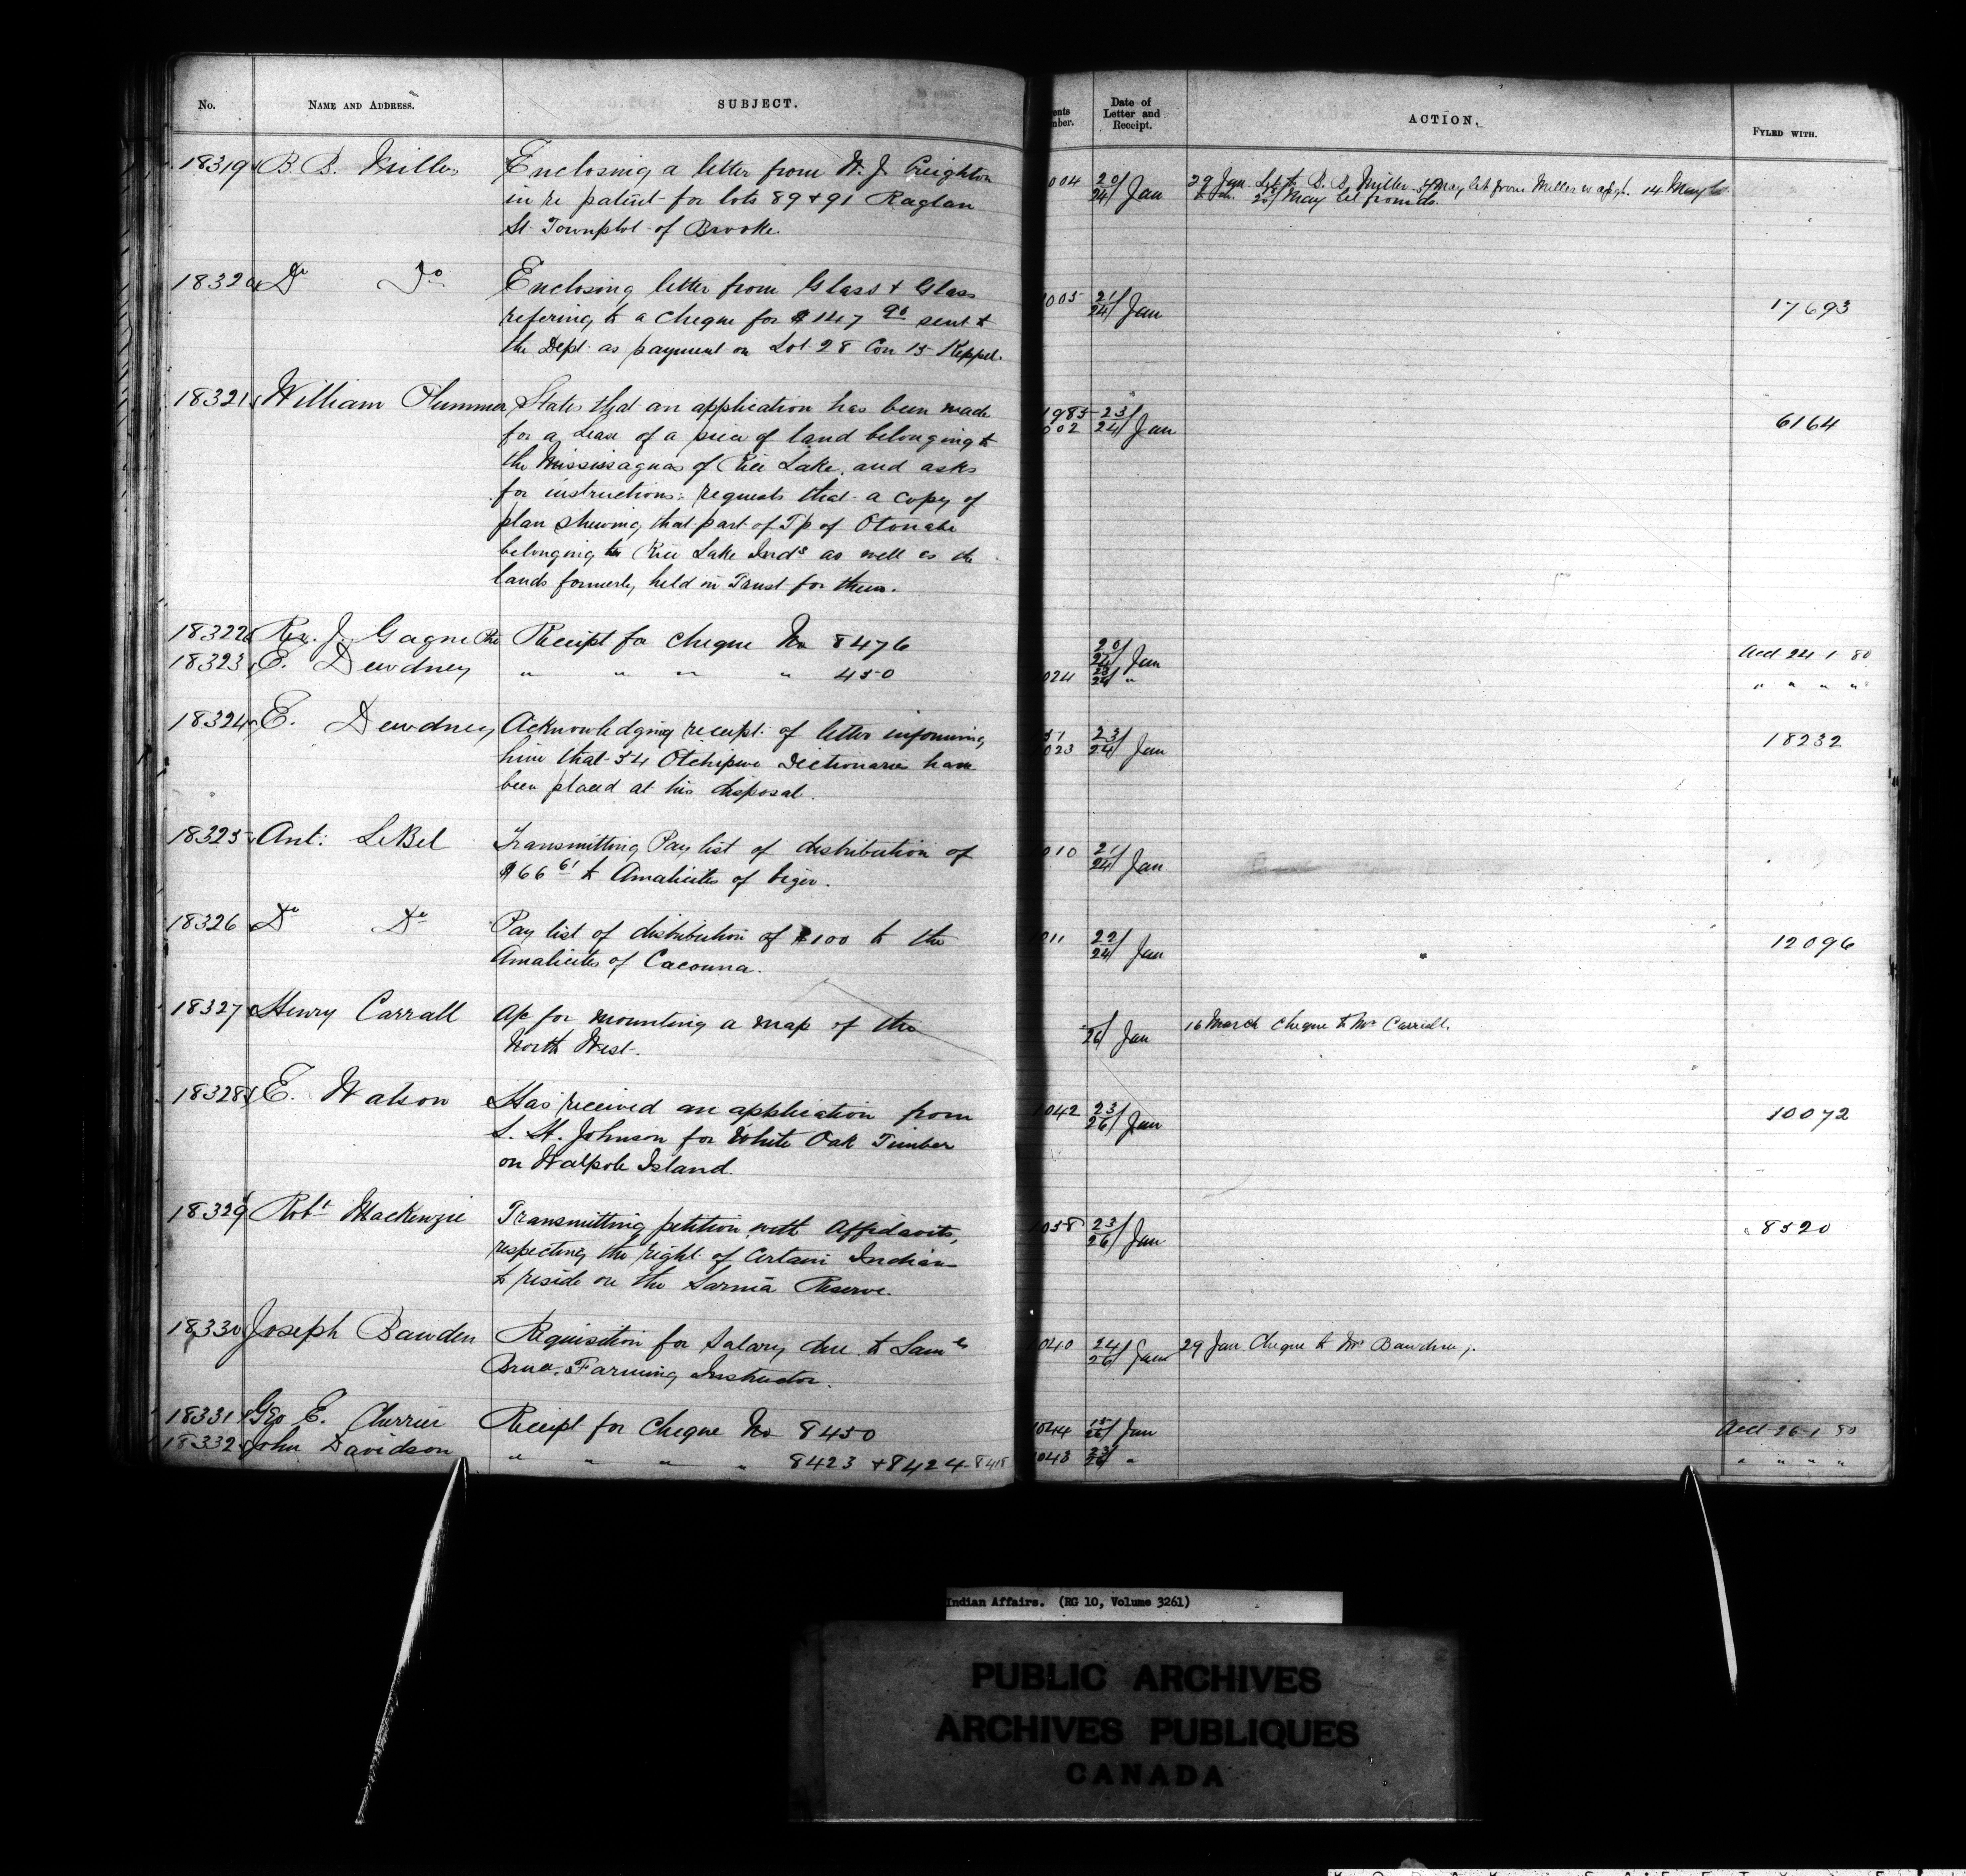 No. NAME AND ADDRESS. SUBJECT.
18319 B. B. Miller Enclosing a letter from W. J. Creighton
in re patent for lots 89 + 91 Raglan
St. Townplot of Brooke.
18320 Do Do Enclosing letter from Glass + Glass
refering to a cheque for $147 90 sent to
the Dept. as payment on Lot 28 Con 15 Keppel.
18321 William Plummer States that an application has been made
for a Lease of a piece of land belonging to
the Mississaguas of Rice Lake, and asks
for instructions: requests that a copy of
plan shewing that part of Tp of Otonabe
belonging to Rice Lake Inds as well as the
lands formerly held in Trust for them.
18322 Rev. J. Gagne Receipt for cheque No 8476
18323 E. Dewdney " " " " 450
18324 E. Dewdney Acknowledging receipt of letter informing
him that 54 Otchipwe Dictionaries have
been placed at his disposal.
18325 Ant: LeBel Transmitting Pay list of distribution of
$66 61 to Amalicites of Viger.
18326 Do Do Pay list of distribution of $100 to the
Amalicites of Cacouna.
18327 Henry Carrall A/c for mounting a map of the
North West.
18328 E. Watson Has received an application from
S. H. Johnson for White Oak Timber
on Walpole Island.
18329 Robt Mackenzie Transmitting petition with Affidavits,
respecting the right of certain Indians
to reside on the Sarnia Reserve.
18330 Joseph Bawden Requisition for Salary due to Saml
Bruce, Farming Instructor.
18331 Geo E. Cherrier Receipt for Cheque No 8450
18332 John Davidson " " " " 8423 + 8424 - 8418
ents
mber. Date of
Letter and
Receipt. ACTION. FYLED WITH.
004 20/24 Jan 29 Jan. Let to B. B. Miller. May let from Miller 14 May
20 May let from do.
005 21/24 Jan 17693
1985 23/
002 24/ Jan 6164
20/24 Jan Accd 24 1 80
024 23/24 " " " " "
51 23/
023 24/ Jan 18232
010 21/24 Jan
011 22/24 Jan 12096
/26 Jan 16 March cheque to Mr Carrall.
1042 23/26 Jan 10072
1038 23/26 Jan 8520
1040 24/26 Jan 29 Jan Cheque to Mr Bawden
1044 15/26 Jan Accd 26 1 80
1043 23/26 " " " " "
Indian Affairs. (RG 10, Volume 3261)
PUBLIC ARCHIVES
ARCHIVES PUBLIQUES
CANADA